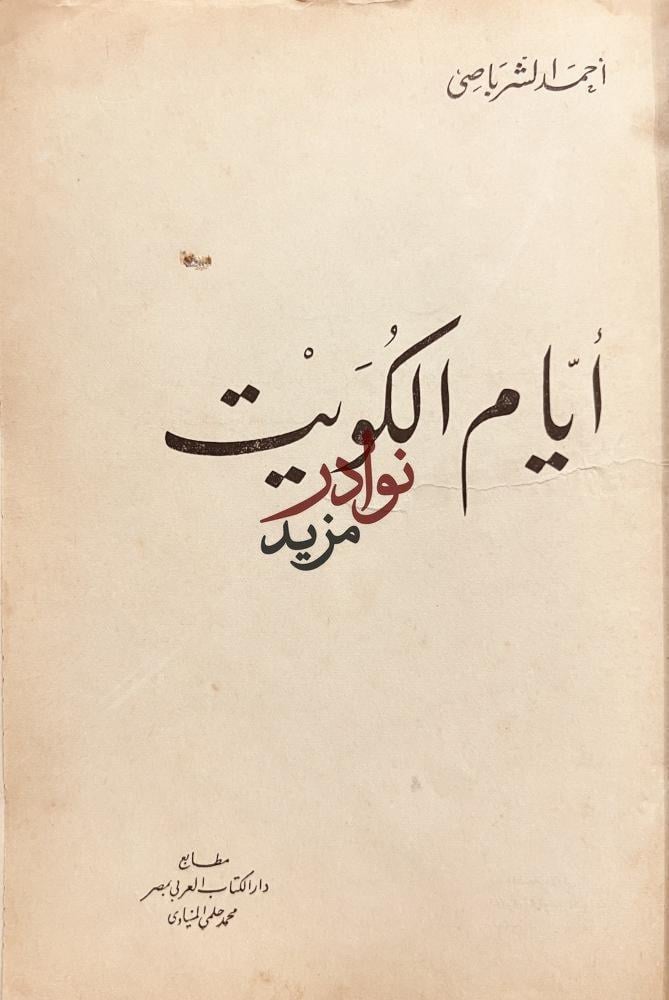 أحمد الشرباصي
أيّام الكُوَيْت
نوادر
مزيد
مطابع
دار الكتاب العربي بمصر
محمد حلمي المنياوي